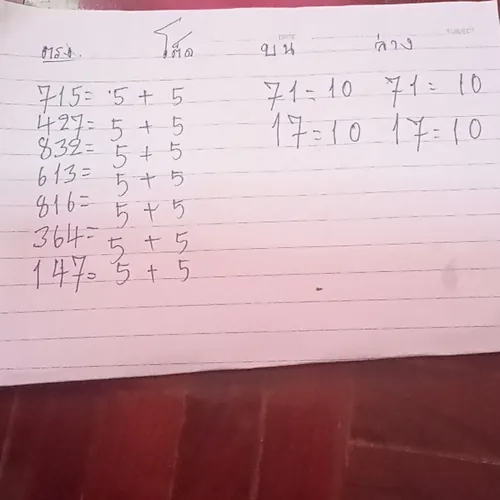 ตรง โต๊ด บน ล่าง
DATE SUBJECT
715= 5 + 5 71=10 71=10
427= 5 + 5 17=10 17=10
832= 5 + 5
613= 5 + 5
816= 5 + 5
364= 5 + 5
147= 5 + 5